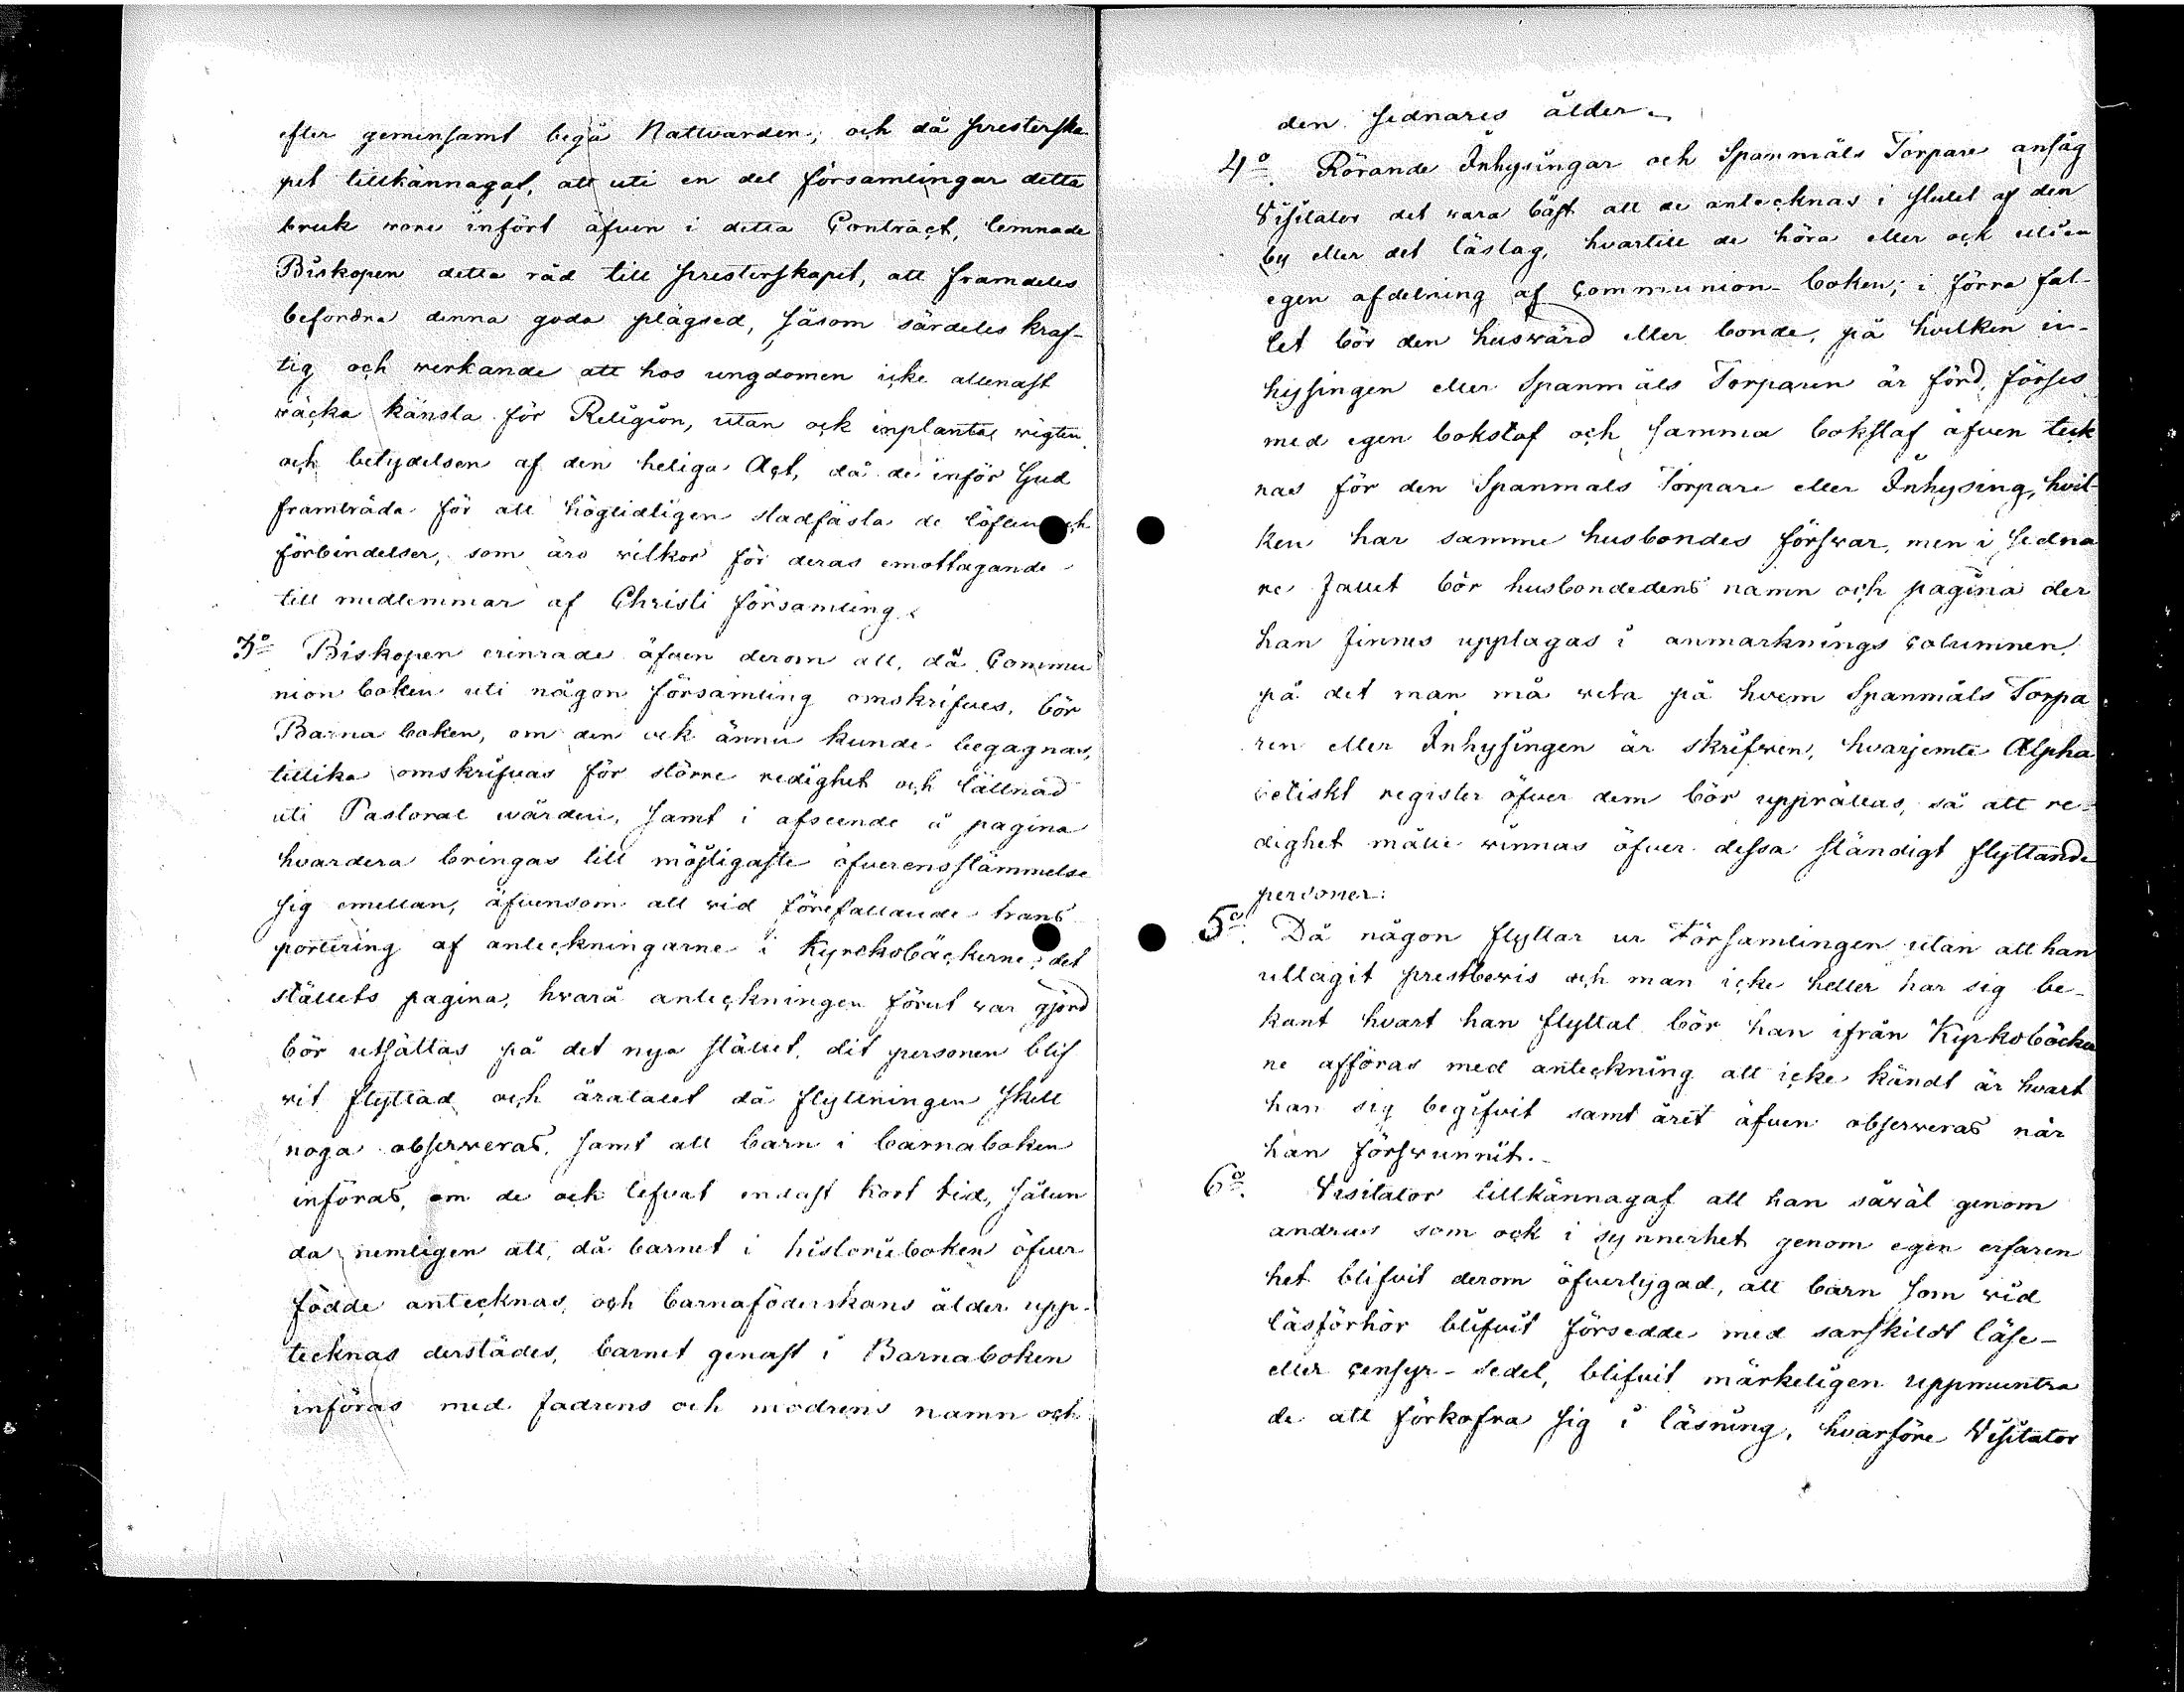 efter gemensamt begå Nattvarden; och då presterska
pet tillkännagaf, att uti en del församlingar detta
bruk wore infört äfven i detta Contract, lemnade
Biskopen detta råd till presterskapet, att framdeles
befordra denna goda plägsed, såsom särdeles kraf-
tig och werkande att hos ungdomen icke allenast
wäcka känsla för Religion, utan ock inplanta wigten
och betydelsen af den heliga Act, då de inför Gud
framträda för att högtidligen stadfästa de löften och
förbindelser, som äro wilkor för deras emottagande
till medlemmar af Christi församling.
3o Biskopen erinrade äfven derom att, då Commu
nion boken uti någon församling omskrifves, bör
Barna boken, om den ock ännu kunde begagnas,
tillika omskrifvas för större redighet och lättnad
uti Pastoral wården, samt i afseende å pagina
hvardera bringas till möjligaste öfverensstämmelse
sig emellan, äfvensom att wid förefallande trans
portering af anteckningarne i Kyrckoböckerne, det
ställets pagina, hvarå anteckningen förut war gjord
bör utsättas på det nya stället, dit personen blif
wit flyttad och åratalet då flyttningen skett
noga observeras, samt att barn i barnaboken
införas, om de ock lefvat endast kort tid, sålun
da nemligen att, då barnet i historieboken öfver
födde antecknas, och barnaföderskans ålder upp-
tecknas derstädes, barnet genast i Barnaboken
införas med fadrens och modrens namn och
den sednares ålder.
4o. Rörande Inhysingar och Spanmåls Torpare ansåg
Visitator det wara bäst att de antecknas i slutet af den
by eller det läslag, hvartill de höra eller ock uti en
egen afdelning af Communion-boken; i förra fal-
let bör den huswärd eller bonde, på hvilken in-
hysingen eller Spanmåls Torparen är förd, förses
med egen bokstaf och samma bokstaf äfven teck
nas för den Spanmåls Torpare eller Inhysing, hvil-
ken har samme husbondes förswar, men i sedna
re fallet bör husbondedens namn och pagina der
han finnes upptagas i anmarknings columnen
på det man må weta på hvem Spanmåls Torpa
ren eller Inhysingen är skrifwen, hvarjemte Alpha
betiskt register öfver dem bör upprättas, så att re-
dighet måtte winnas öfver dessa ständigt flyttande
personer.
5o. Då någon flyttar ur Församlingen utan att han
uttagit prestbewis och man icke heller har sig be-
kant hvart han flyttat bör han ifrån Kyrkoböcker
ne afföras med anteckning att icke kändt är hvart
han sig begifvit samt året äfven observeras när
han förswunnit.-
6o. Visitator tillkännagaf att han såwäl genom
andras som ock i synnerhet genom egen erfaren
het blifvit derom öfvertygad, att barn som wid
läsförhör blifvit försedde med sarskildt läse-
eller censyr-sedel, blifvit märkeligen uppmuntra
de att förkofra sig i läsning, hvarföre Visitator